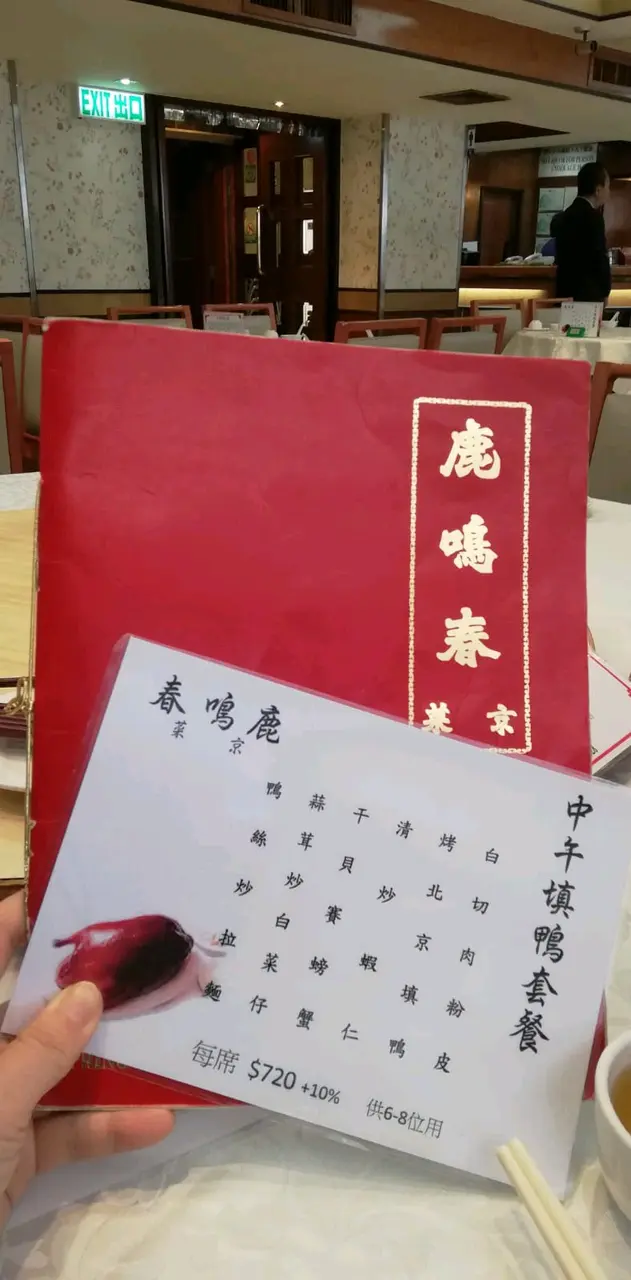 EXIT 出口
鹿鳴春
京菜
鹿鳴春
京菜
中午填鴨套餐
白切肉粉皮
烤北京填鴨
清炒蝦仁
干貝賽螃蟹
蒜茸炒白菜仔
鴨絲炒拉麵
每席 $720 +10% 供6-8位用